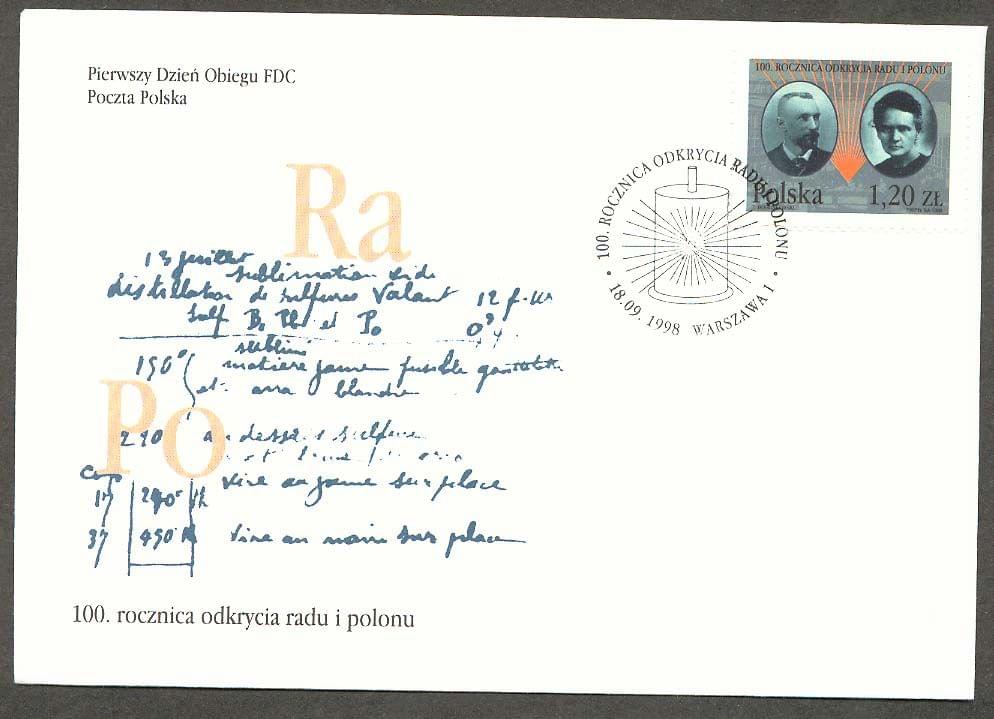 Pierwszy Dzień Obiegu FDC
Poczta Polska
100. ROCZNICA ODKRYCIA RADU I POLONU
Polska 1,20 ZŁ
100. ROCZNICA ODKRYCIA RADU I POLONU
18.09.1998 WARSZAWA 1
Ra
13 juillet
sublimation
distillation de sulfures Valant 12
Bi Pb et Po
sublimé
150° matière jaune fusible
et blanche
Po
240 sulfure
vire au jaune sur place
37 450° vire au noir sur place
100. rocznica odkrycia radu i polonu